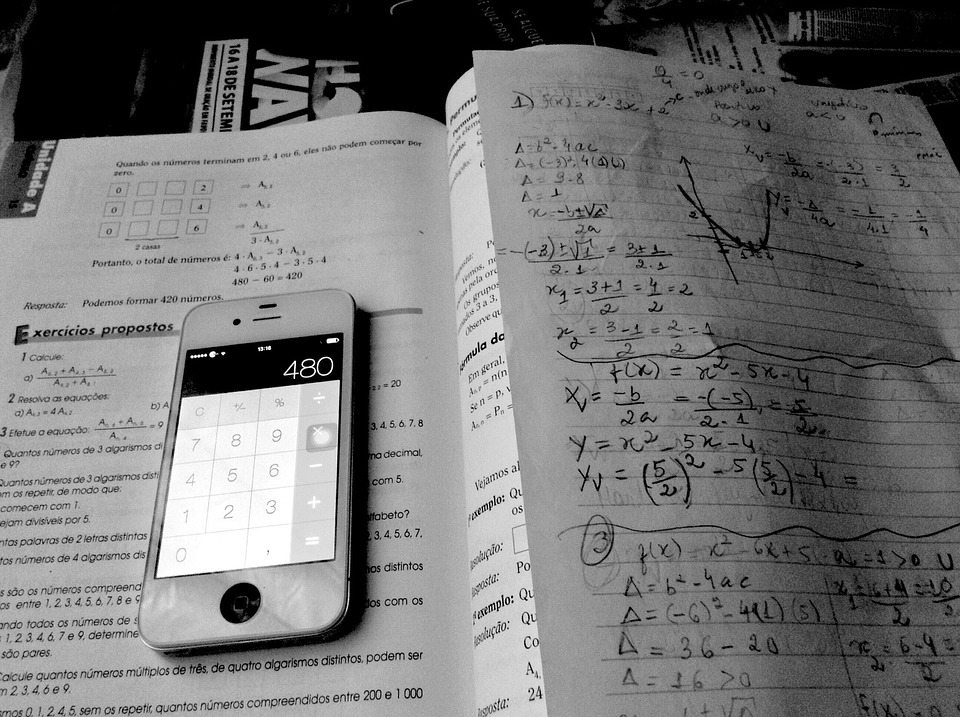 16 A 18 DE SETEM
HO
NA
Unidade A
Quando os números terminam em 2, 4 ou 6, eles não podem começar por
zero.
0 2 ⇒ A₅,₂
0 4 ⇒ A₅,₂
0 6 ⇒ A₅,₂
2 casas 3 · A₅,₂
Portanto, o total de números é: 4 · A₆,₃ − 3 · A₅,₂
4 · 6 · 5 · 4 − 3 · 5 · 4
480 − 60 = 420
Resposta: Podemos formar 420 números.
Exercícios propostos
1 Calcule:
a)
2 Resolva as equações:
a) b)
3 Efetue a equação: = 9
Quantos números de 3 algarismos di
e 9?
Quantos números de 3 algarismos disti
em os repetir, de modo que:
comecem com 1.
ejam divisíveis por 5.
ntas palavras de 2 letras distintas
tos números de 4 algarismos dis
s são os números compreend
os entre 1, 2, 3, 4, 5, 6, 7, 8 e 9
ando todos os números de
1, 2, 3, 4, 6, 7 e 9, determine
são pares.
Calcule quantos números múltiplos de três, de quatro algarismos distintos, podem ser
m 2, 3, 4, 6 e 9.
smos 0, 1, 2, 4, 5, sem os repetir, quantos números compreendidos entre 200 e 1 000
= 20
3, 4, 5, 6, 7, 8
ma decimal,
com 5.
lfabeto?
2, 3, 4, 5, 6, 7,
mos distintos
dos com os
13:16
480
C +/− % ÷
7 8 9 ×
4 5 6 −
1 2 3 +
0 , =
Permu
Permutaç
Vemos, no
Os grupos
mados 3 a 3,
Observe qu
órmula da
Em geral,
Se n = p,
Vejamos al
exemplo: Qu
os
esolução:
esposta: Po
exemplo: Qu
esolução: Qu
Co
A₄,
esposta: 24
= 0
1) f(x) = x² − 3x + 2
a > 0 U
a < 0 ∩
Δ = b² − 4ac
Δ = (−3)² − 4(1)(2)
Δ = 9 − 8
Δ = 1
x = −b ± √Δ / 2a
= −(−3) ± √1 / 2.1 = 3 ± 1 / 2.1
x₁ = 3 + 1 / 2 = 4 / 2 = 2
x₂ = 3 − 1 / 2 = 2 / 2 = 1
Xv = −b / 2a = −(−3) / 2.1 = 3 / 2
Yv = −Δ / 4a = 1 / 4.1 = −1 / 4
f(x) = x² − 5x − 4
Xv = −b / 2a = −(−5) / 2.1 = 5 / 2
Y = x² − 5x − 4
Yv = (5/2)² − 5(5/2) − 4 =
3) f(x) = x² − 6x + 5 a = 1 > 0 U
Δ = b² − 4ac
Δ = (−6)² − 4(1)(5)
Δ = 36 − 20
Δ = 16 > 0
x₁ = 6 + 4 / 2 = 10 / 2
x₂ = 6 − 4 / 2 =